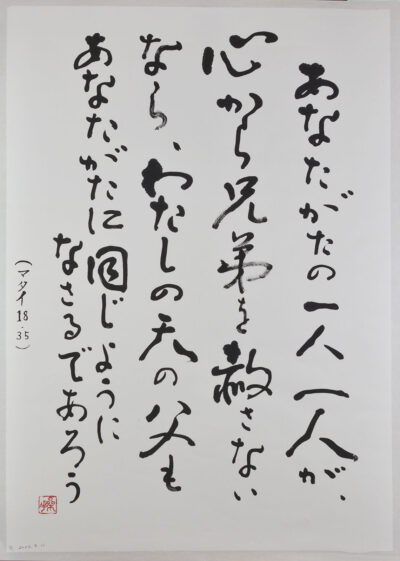 あなたがたの一人一人が、
心から兄弟を赦さない
なら、わたしの天の父も
あなたがたに同じように
なさるであろう
(マタイ18.35)